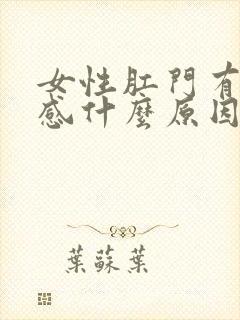 女性肛門有
感什麼原因
葉蘇葉